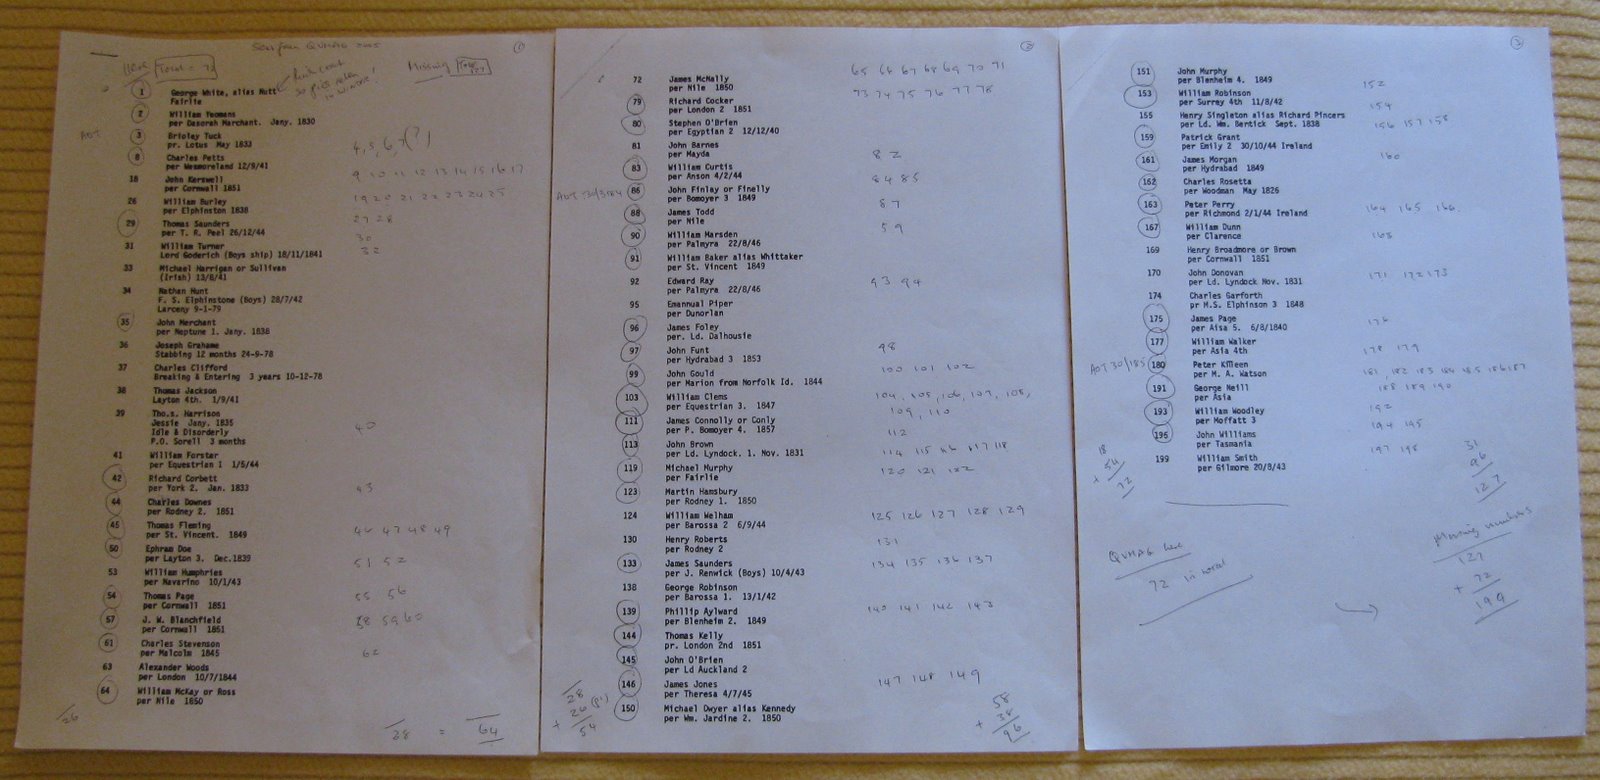 Here Total = 72
Missing Total 127
1
1 George White, alias Nutt
Fairlie
2 William Yeomans
per Deborah Marchant. Jany. 1830
AOT
3 Brioley Tuck
pr. Lotus May 1833
4, 5, 6, 7 (?)
8 Charles Petts
per Wesmoreland 12/9/41
9 10 11 12 13 14 15 16 17
18 John Kerswell
per Cornwall 1851
19 20 21 22 23 24 25
26 William Burley
per Elphinston 1838
27 28
29 Thomas Saunders
per T. R. Peel 26/12/44
30
31 William Turner
Lord Goderich (Boys ship) 18/11/1841
32
33 Michael Harrigan or Sullivan
(Irish) 13/8/41
34 Nathan Hunt
F. S. Elphinstone (Boys) 28/7/42
Larceny 9-1-79
35 John Merchant
per Neptune 1. Jany. 1838
36 Joseph Grahame
Stabbing 12 months 24-9-78
37 Charles Clifford
Breaking & Entering 3 years 10-12-78
38 Thomas Jackson
Layton 4th. 1/9/41
39 Tho.s. Harrison
Jessie Jany. 1835
Idle & Disorderly
P.O. Sorell 3 months
40
41 William Forster
per Equestrian 1 1/5/44
42 Richard Corbett
per York 2. Jan. 1833
43
44 Charles Downes
per Rodney 2. 1851
45 Thomas Fleming
per St. Vincent. 1849
46 47 48 49
50 Ephram Doe
per Layton 3. Dec.1839
51 52
53 William Humphries
per Navarino 10/1/43
54 Thomas Page
per Cornwall 1851
55 56
57 J. W. Blanchfield
per Cornwall 1851
58 59 60
61 Charles Stevenson
per Malcolm 1845
62
63 Alexander Woods
per London 10/7/1844
64 William McKay or Ross
per Nile 1850
26
28 = 64
2
65 66 67 68 69 70 71
72 James McNally
per Nile 1850
73 74 75 76 77 78
79 Richard Cocker
per London 2 1851
80 Stephen O'Brien
per Egyptian 2 12/12/40
81 John Barnes
per Mayda
82
83 William Curtis
per Anson 4/2/44
84 85
86 John Finlay or Finelly
per Bomoyer 3 1849
87
88 James Todd
per Nile
59
90 William Marsden
per Palmyra 22/8/46
91 William Baker alias Whittaker
per St. Vincent 1849
92 Edward Ray
per Palmyra 22/8/46
93 94
95 Emannual Piper
per Dunorlan
96 James Foley
per. Ld. Dalhousie
97 John Funt
per Hydrabad 3 1853
98
99 John Gould
per Marion from Norfolk Id. 1844
100 101 102
103 William Clems
per Equestrian 3. 1847
104, 105, 106, 107, 108,
109, 110
111 James Connolly or Conly
per P. Bomoyer 4. 1857
112
113 John Brown
per Ld. Lyndock. 1. Nov. 1831
114 115 116 117 118
119 Michael Murphy
per Fairlie
120 121 122
123 Martin Hamsbury
per Rodney 1. 1850
124 William Welham
per Barossa 2 6/9/44
125 126 127 128 129
130 Henry Roberts
per Rodney 2
131
133 James Saunders
per J. Renwick (Boys) 10/4/43
134 135 136 137
138 George Robinson
per Barossa 1. 13/1/42
139 Phillip Aylward
per Blenheim 2. 1849
140 141 142 143
144 Thomas Kelly
pr. London 2nd 1851
145 John O'Brien
per Ld Auckland 2
146 James Jones
per Theresa 4/7/45
147 148 149
150 Michael Dwyer alias Kennedy
per Wm. Jardine 2. 1850
28
+ 26 (p1)
54
58
+ 38
96
3
151 John Murphy
per Blenheim 4. 1849
152
153 William Robinson
per Surrey 4th 11/8/42
154
155 Henry Singleton alias Richard Pincers
per Ld. Wm. Bentick Sept. 1838
156 157 158
159 Patrick Grant
per Emily 2 30/10/44 Ireland
160
161 James Morgan
per Hydrabad 1849
162 Charles Rosetta
per Woodman May 1826
163 Peter Perry
per Richmond 2/1/44 Ireland
164 165 166
167 William Dunn
per Clarence
168
169 Henry Broadmore or Brown
per Cornwall 1851
170 John Donovan
per Ld. Lyndock Nov. 1831
171 172 173
174 Charles Garforth
pr M.S. Elphinson 3 1848
175 James Page
per Aisa 5. 6/8/1840
176
177 William Walker
per Asia 4th
178 179
AOT 30/185
180 Peter Killeen
per M. A. Watson
181, 182 183 184 185 186 187
188 189 190
191 George Neill
per Asia
193 William Woodley
per Moffatt 3
192
194 195
196 John Williams
per Tasmania
197 198
199 William Smith
per Gilmore 20/8/43
18
+ 54
72
31
96
127
QVMAG here
72 in total
Missing numbers
127
+ 72
199